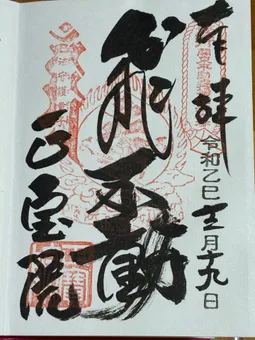 奉拝
令和乙巳十二月十九日
飛不動
正宝院